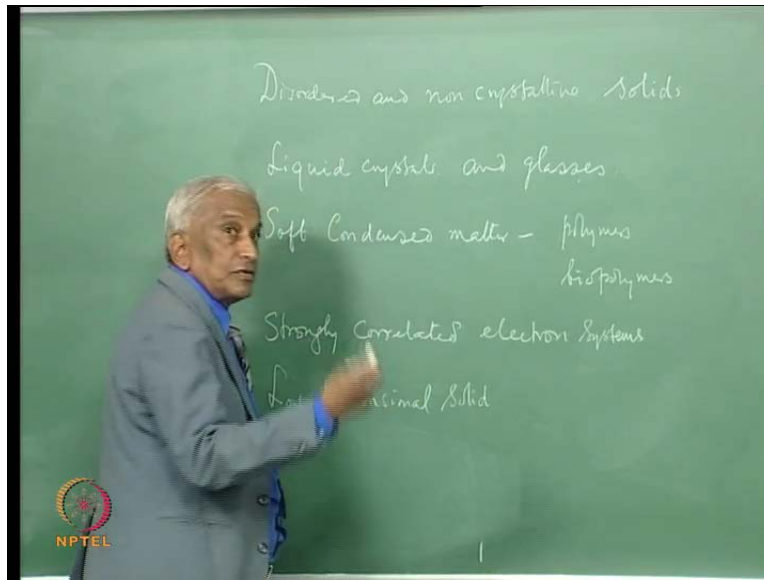 Disordered and non crystalline solids
Liquid crystals and glasses
Soft Condensed matter - polymers
biopolymers
Strongly correlated electron systems
solid
NPTEL